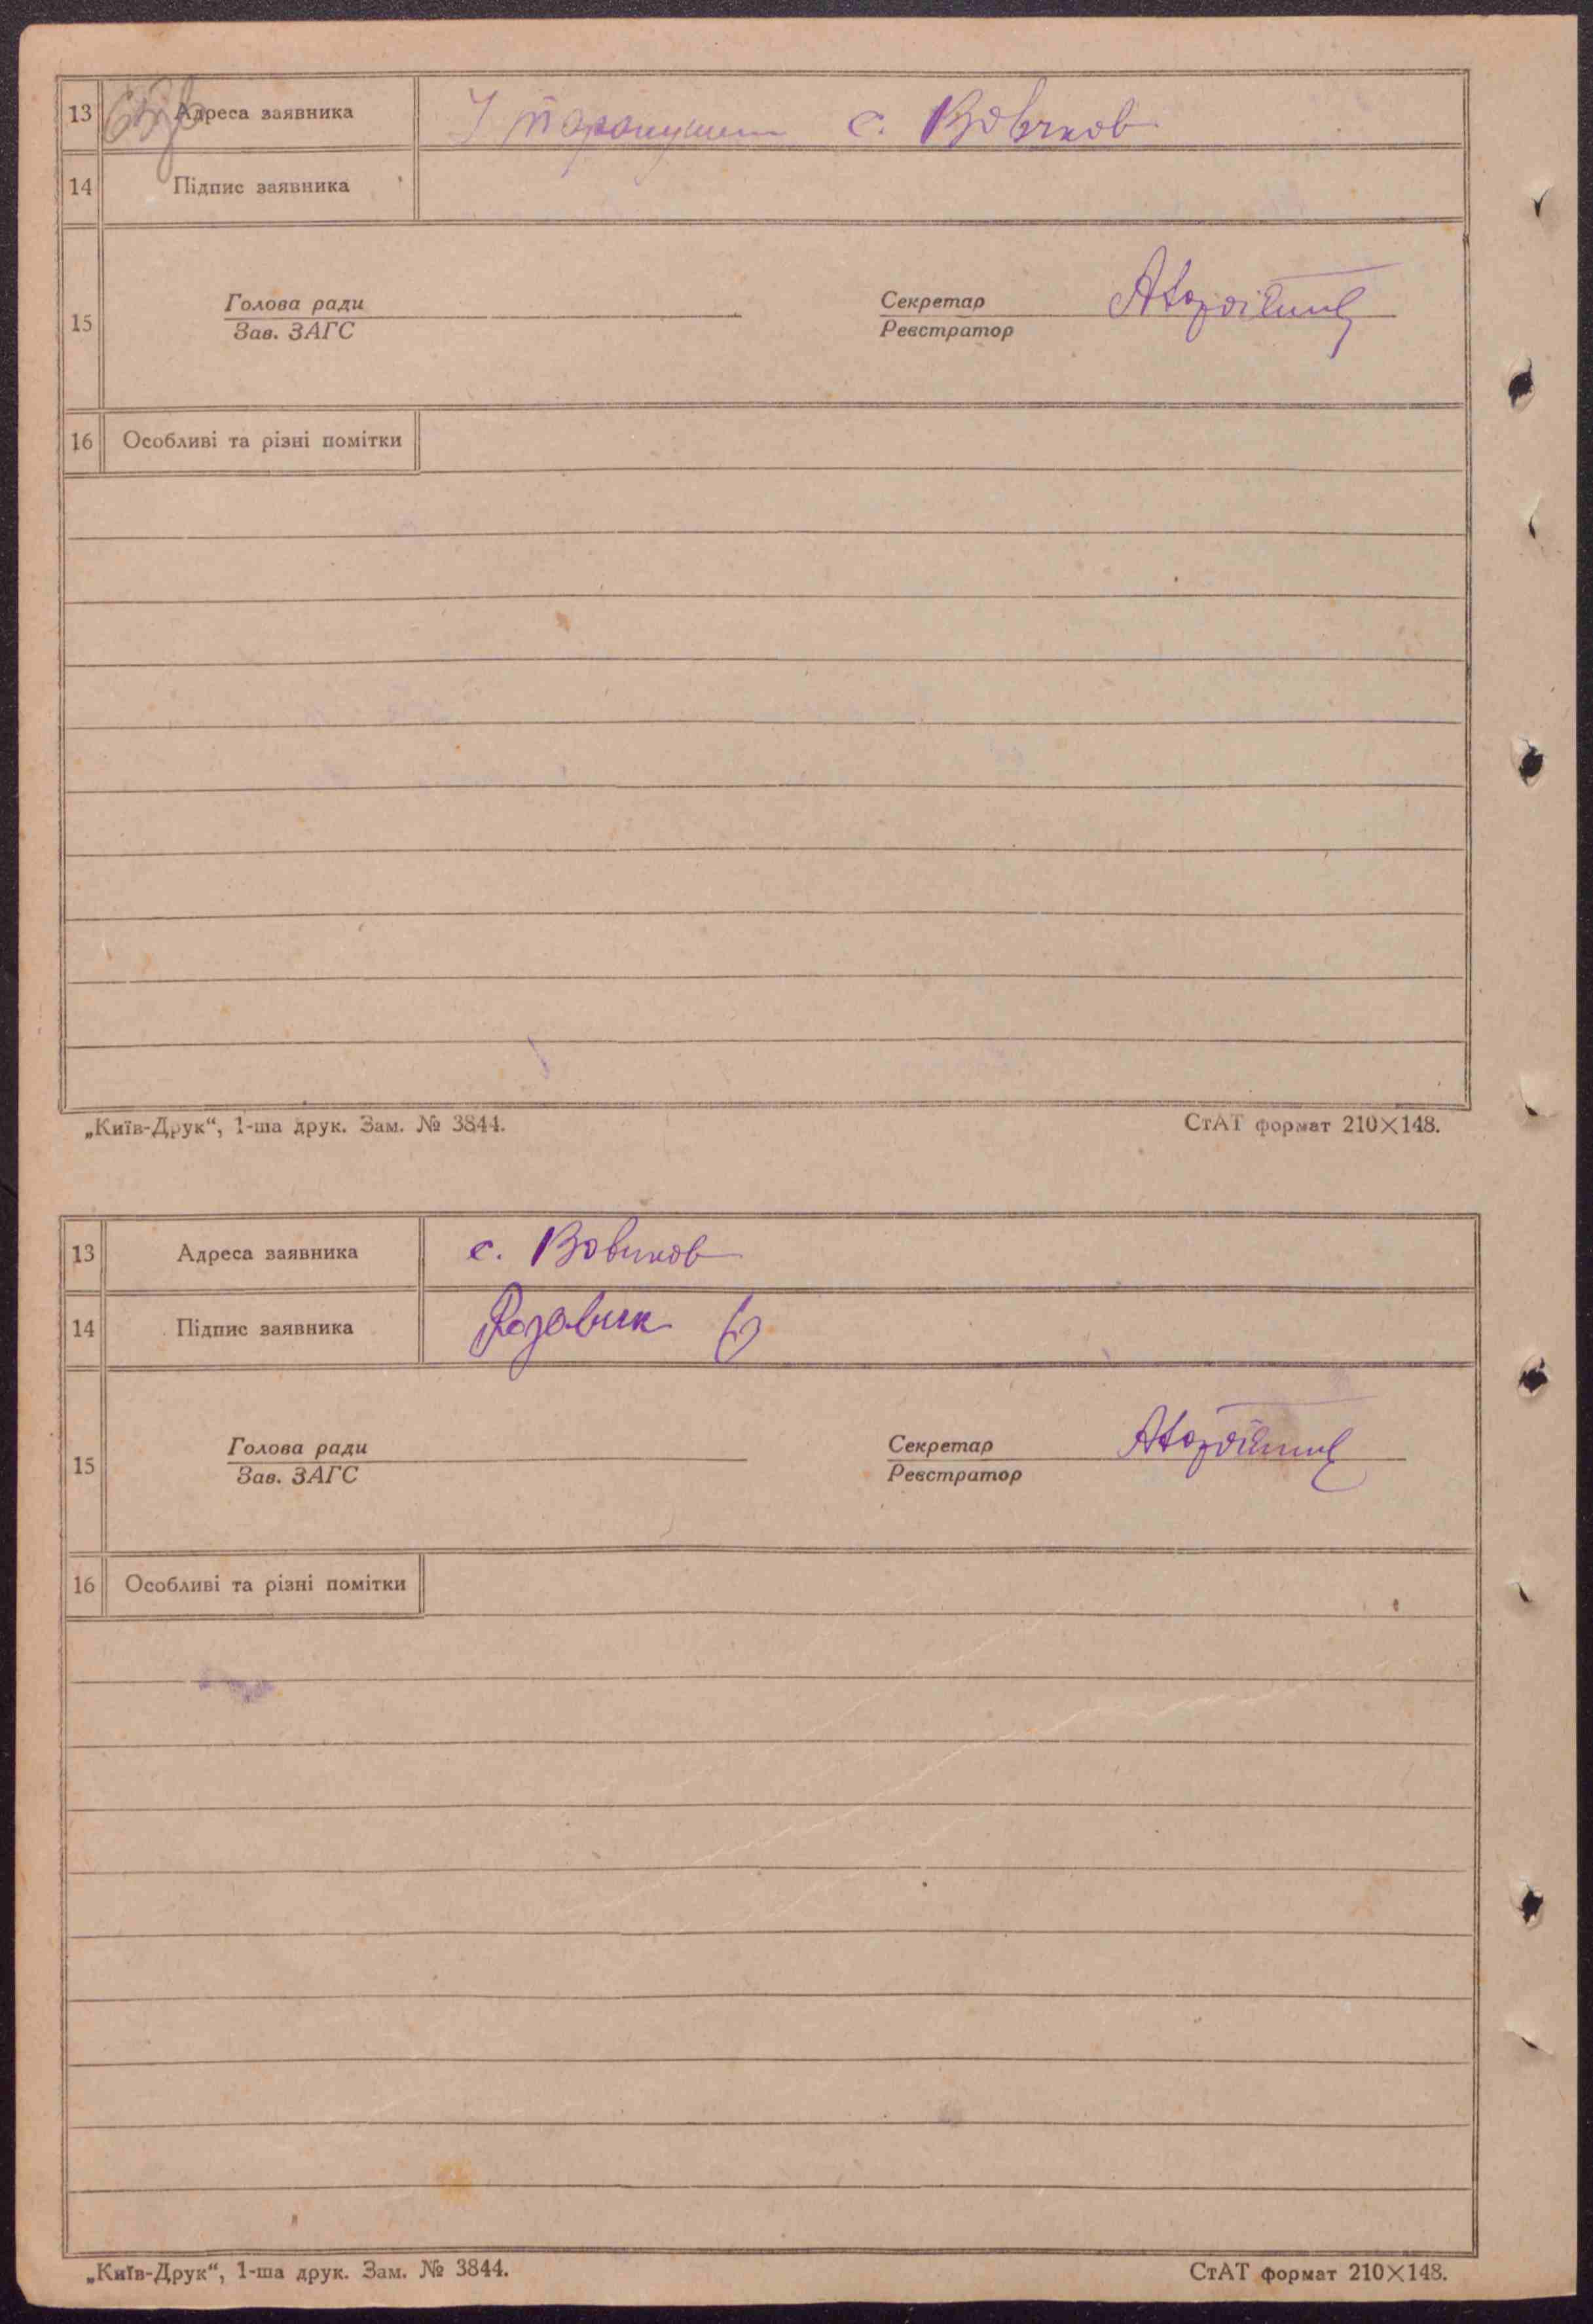 13 Адреса заявника с. Вовчков
14 Підпис заявника
Голова ради Секретар
15
Зав. ЗАГС Реєстратор
16 Особливі та різні помітки
„Київ-Друк“, 1-ша друк. Зам. № 3844. СтАТ формат 210×148.
13 Адреса заявника с. Вовчков
14 Підпис заявника
Голова ради Секретар
15
Зав. ЗАГС Реєстратор
16 Особливі та різні помітки
„Київ-Друк“, 1-ша друк. Зам. № 3844. СтАТ формат 210×148.